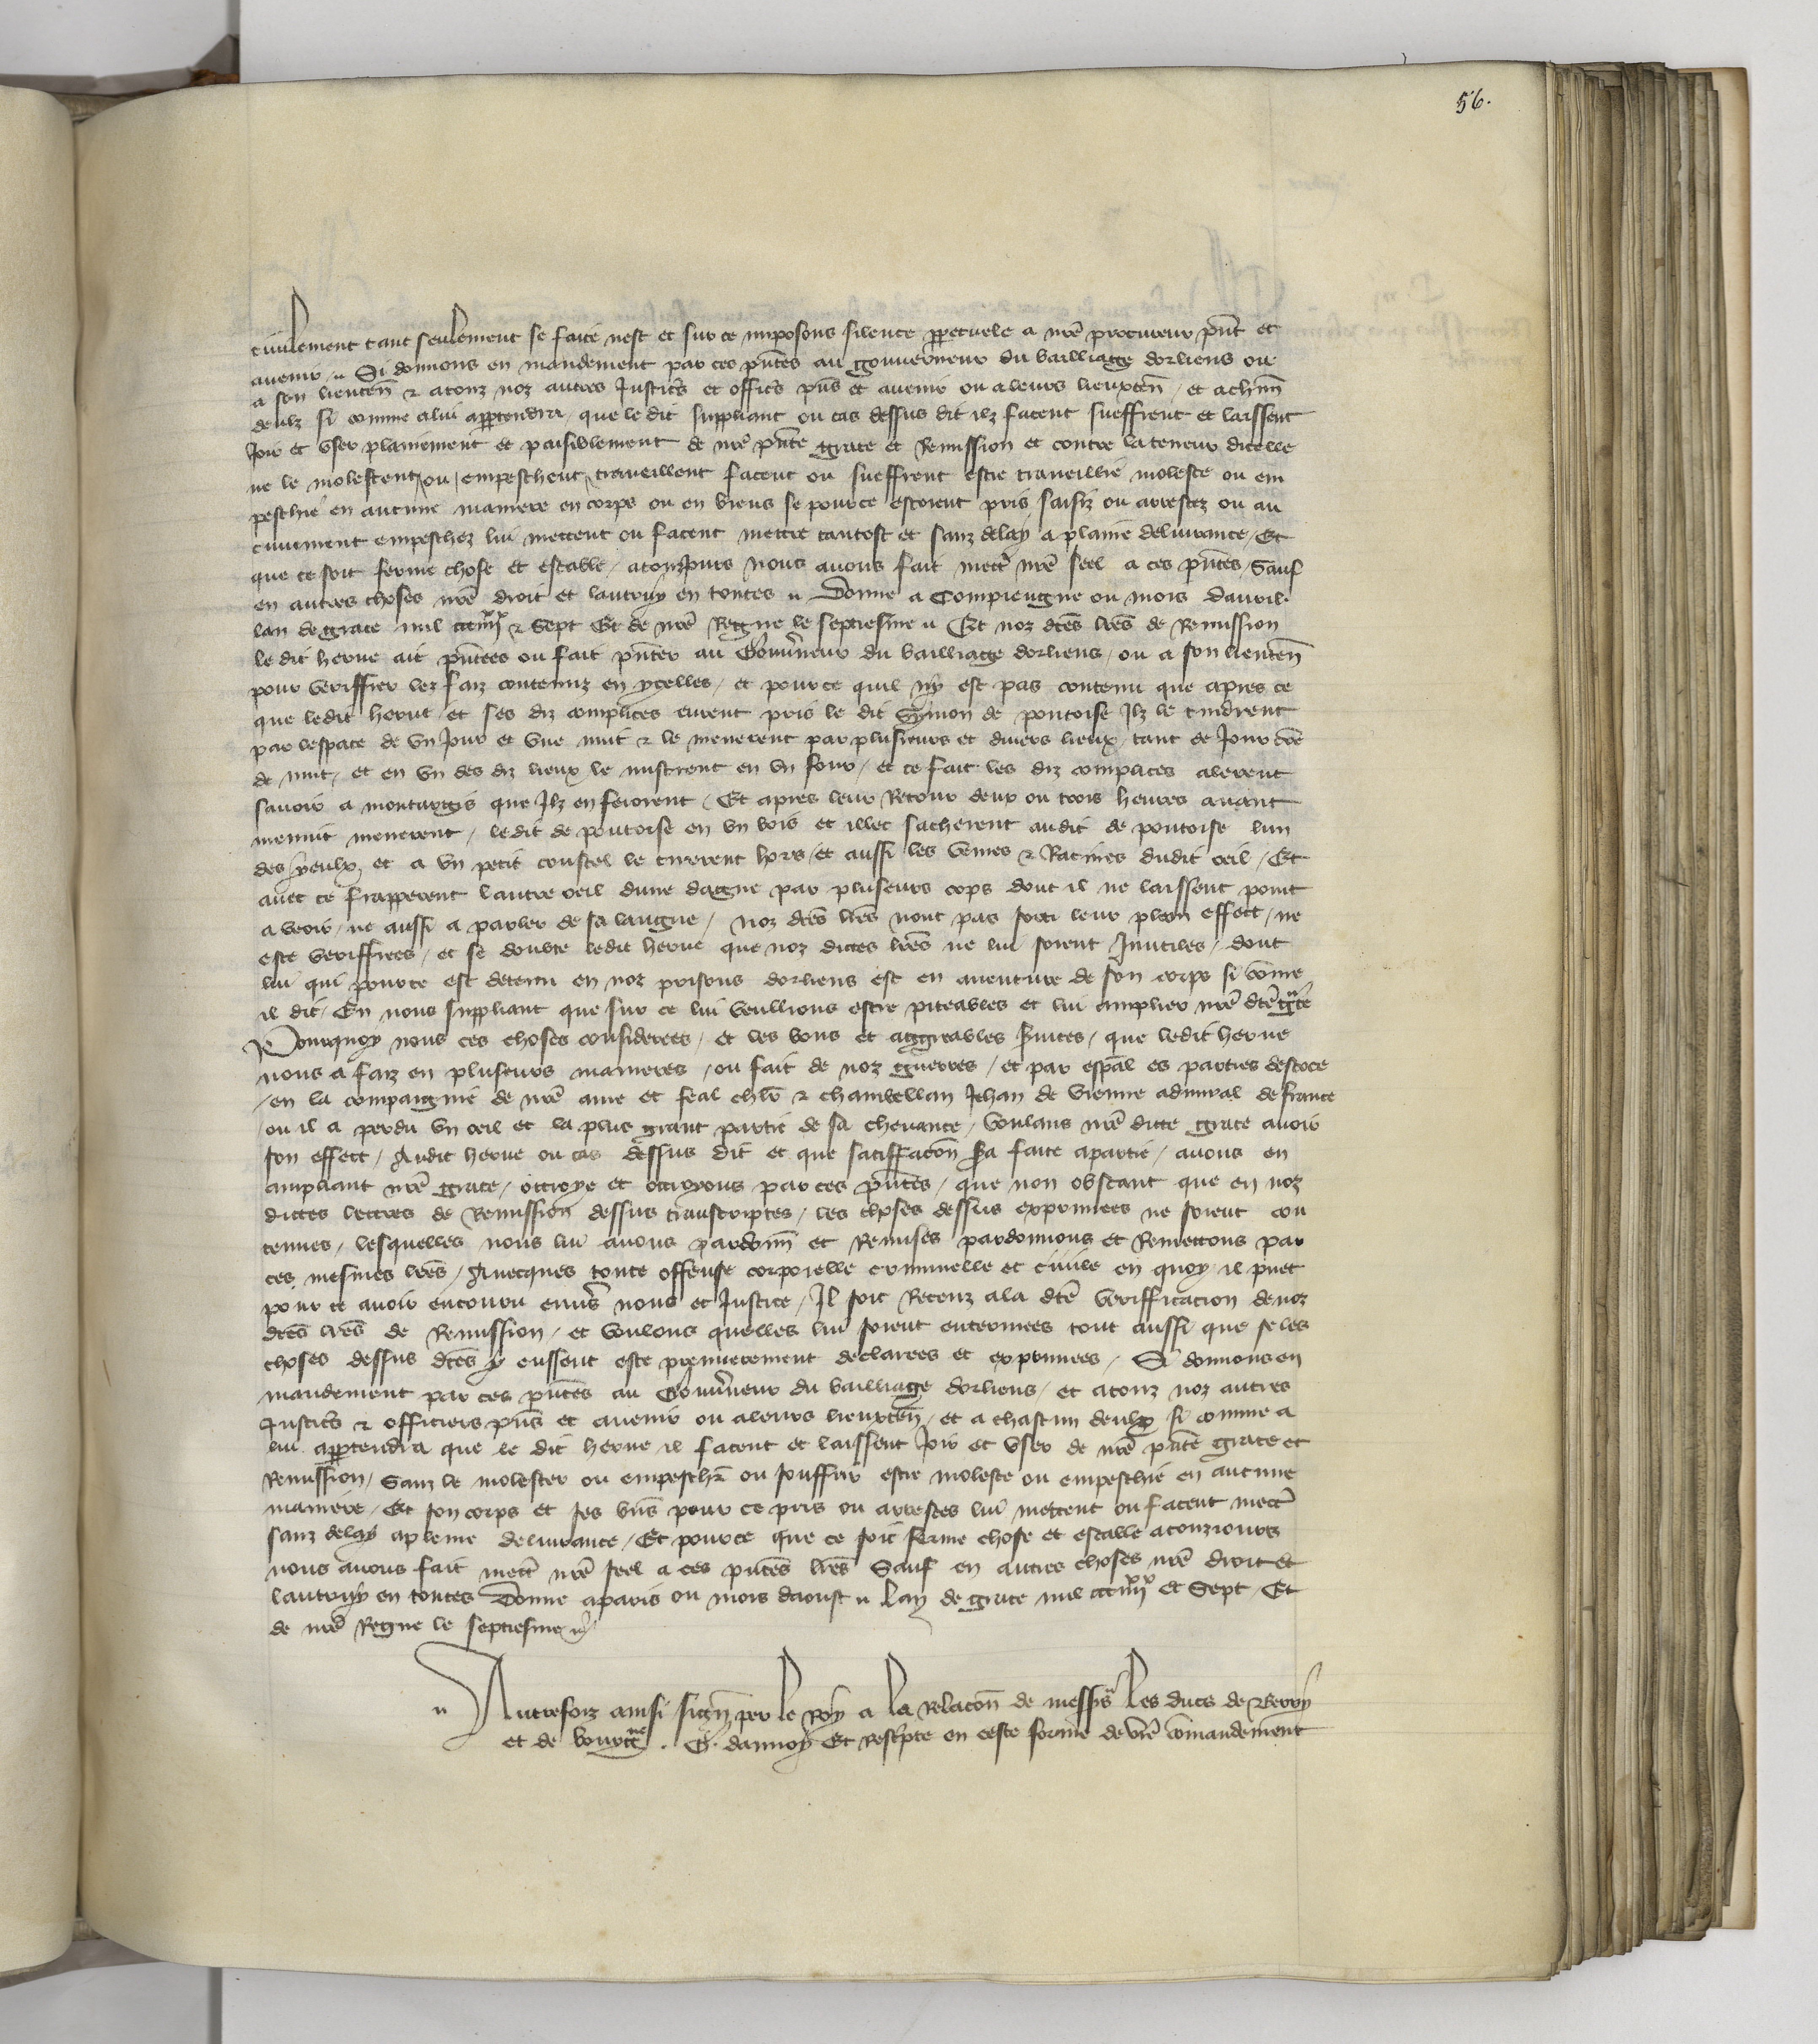 56.
civilement tant seulement se faite nest et sur ce imposons silence ppetuele a nrẽ procureur pñt et
avenir Si donnons en mandement par ces pñtes au gouverneur du bailliage dorliens ou
a son lieuteñ & a touz noz autres Justicẽs et officẽs pñs et avenir ou a leurs lieuxteñ / et a chũn
deulz si comme a lui appartendra / que le dit suppliant ou cas dessus dit ilz facent sueffrent et laissent
Joir et user plainement et paisiblement de nrẽ pñte grace et Remission et contre la teneur dicelle
ne le molestent / ou / empeschent / traveillent facent ou sueffrent estre traveillie moleste ou em
peschie en aucune maniere en corps ou en biens se pource estoient pris saisiz ou arrestez ou au
cunement empeschez lui mettent ou facent mettre tantost et sanz delay a plaine delivrance / Et
que ce soit ferme chose et estable / atousjours nous avons fait mectr̃ nrẽ seel a ces pñtes / Sauf
en autres choses nrẽ droit et lautruy en toutes Donne a Compiengne ou mois davril
lan de grace mil ccciiiixx & Sept Et de nrẽ Regne le septiesme Et noz dtẽs lrẽs de Remission
le dit herve ait pñtees ou fait pñter au Gouvr̃neur du bailliage dorliens / ou a son lieuteñ
pour veriffier lez faiz contenuz en ycelles / et pource quil ny est pas contenu que apres ce
que ledit herve et ses diz complices eurent pris le dit Symon de pontoise Ilz le tindrent
par lespace de un Jour et une nuit & le menerent par plusieurs et divers lieux / tant de Jour cõe
de nuit / et en un des diz lieux le mistrent en un four / et ce fait les diz complices alerent
savoir a montargis que Ilz en feroient / Et apres leur Retour deux ou trois heures avant
mienuit menerent / ledit de pontoise en un bois et illec sacherent audit de pontoise lun
des yeulx / et a un petit coustel le tirerent hors / et aussi les veines & Racines dudit oeil / Et
avec ce frapperent lautre oeil dune dague par pluseurs cops dont il ne laissent point
a veoir / ne aussi a parler de sa langue / noz dtẽs lrẽs nont pas sorti leur plein effect / ne
este veriffiees / et se doubte ledit herve que noz dictes lrẽs ne lui soient Inutiles / dont
lui qui pource est detenu en noz prisons dorliens est en aventure de son corps si cõme
il dit / En nous suppliant que sur ce lui veullions estre piteables et lui amplier nrẽ dtẽ grace
Pourquoy nous ces choses considerees / et les bons et aggreables servìces / que ledit herve
nous a faiz en pluseurs manieres / ou fait de noz guerres / et par espãl es parties descoce
/ en la compaignie de nrẽ ame et feal chlr̃ & chambellan Jehan de vienne admiral de france
/ ou il a perdu un oeil et la plus grant partie de sa chevance / Voulans nrẽ dicte grace avoir
son effect / Audit herve ou cas dessus dit et que satiffacõn sera faite a partie / avons en
ampliant nrẽ grace / ottroye et ottroyons par ces pñtes / que non obstant que en noz
dictes lectres de Remission dessus transcriptes / les choses dessus exprimees ne soient con
tenues / lesquelles nous lui avons pardonñ et Remises pardonnons et Remettons par
ces mesmes lrẽs / Avecques toute offense corporelle criminelle et civile en quoy il puet
pour ce avoir encouru envr̃s nous et Justice / Il soit Receuz a la dtẽ verifficacion de noz
dtẽs lrẽs de Remission / et voulons quelles lui soient enterinees tout aussi que se les
choses dessus dtẽs y eussent este premierement declarees et exprimees / Si donnons en
mandement par ces pñtes au Gouvr̃neur du bailliage dorliens / et a touz noz autres
Justicẽs & officiers pñs et avenir ou a leurs lieuxteñ / et a chascun deulx si comme a
lui appartendra que le dit herve il facent et laissent Joir et user de nrẽ pñte grace et
Remission / Sanz le molester ou empeschr̃ ou souffrir estre moleste ou empeschie en aucune
maniere / Et son corps et ses biẽs pour ce pris ou arrestes lui mettent ou facent mectr̃
sanz delay a pleine delivrance / Et pource que ce soit ferme chose et estable a touzjours
nous avons fait mectr̃ nrẽ seel a ces pñtes lrẽs Sauf en autres choses nrẽ droit et
lautruy en toutes Donne a paris ou mois daoust Lan de grace mil ccciiiixx et Sept / Et
de nrẽ Regne le septiesme
Autrefoiz ainsi sigñ par le Roy a la Relacõn de messrs Les ducs de Berry
et de bourgne . G. daunoy Et Rescripte en ceste forme de vr̃e cõmandement